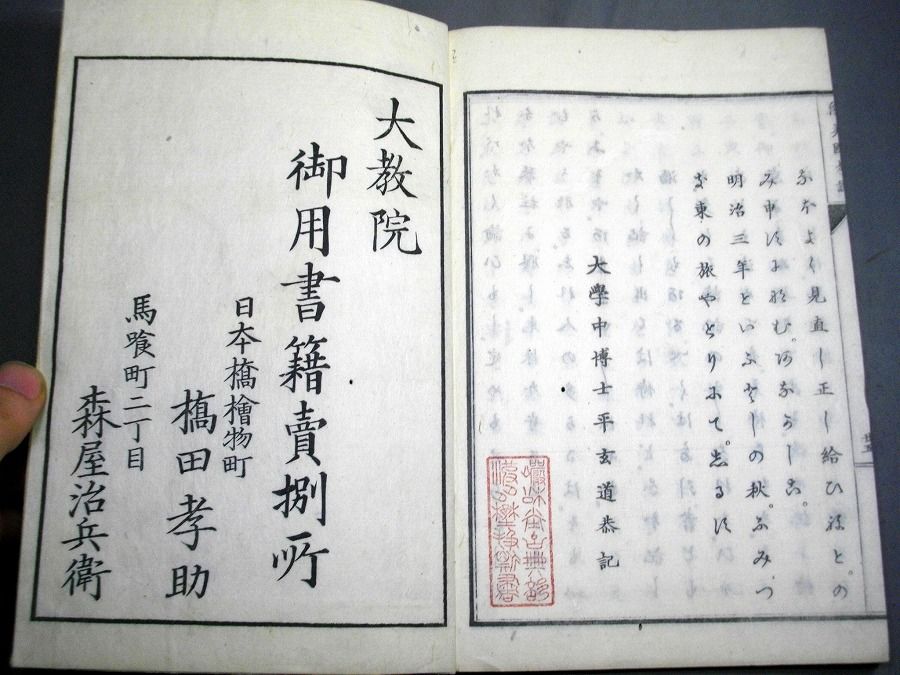 なほよく見直し正し給ひねとの
み申すになむ。あなかしこ。
明治三年といふとしの秋。ふみつ
き東の旅やとりにて。しるす
大學中博士平玄道恭記
大教院
御用書籍賣捌所
日本橋檜物町
橋田孝助
馬喰町二丁目
森屋治兵衛